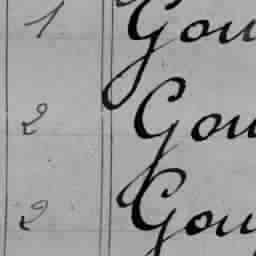 1 Gou
2 Gou
2 Gou